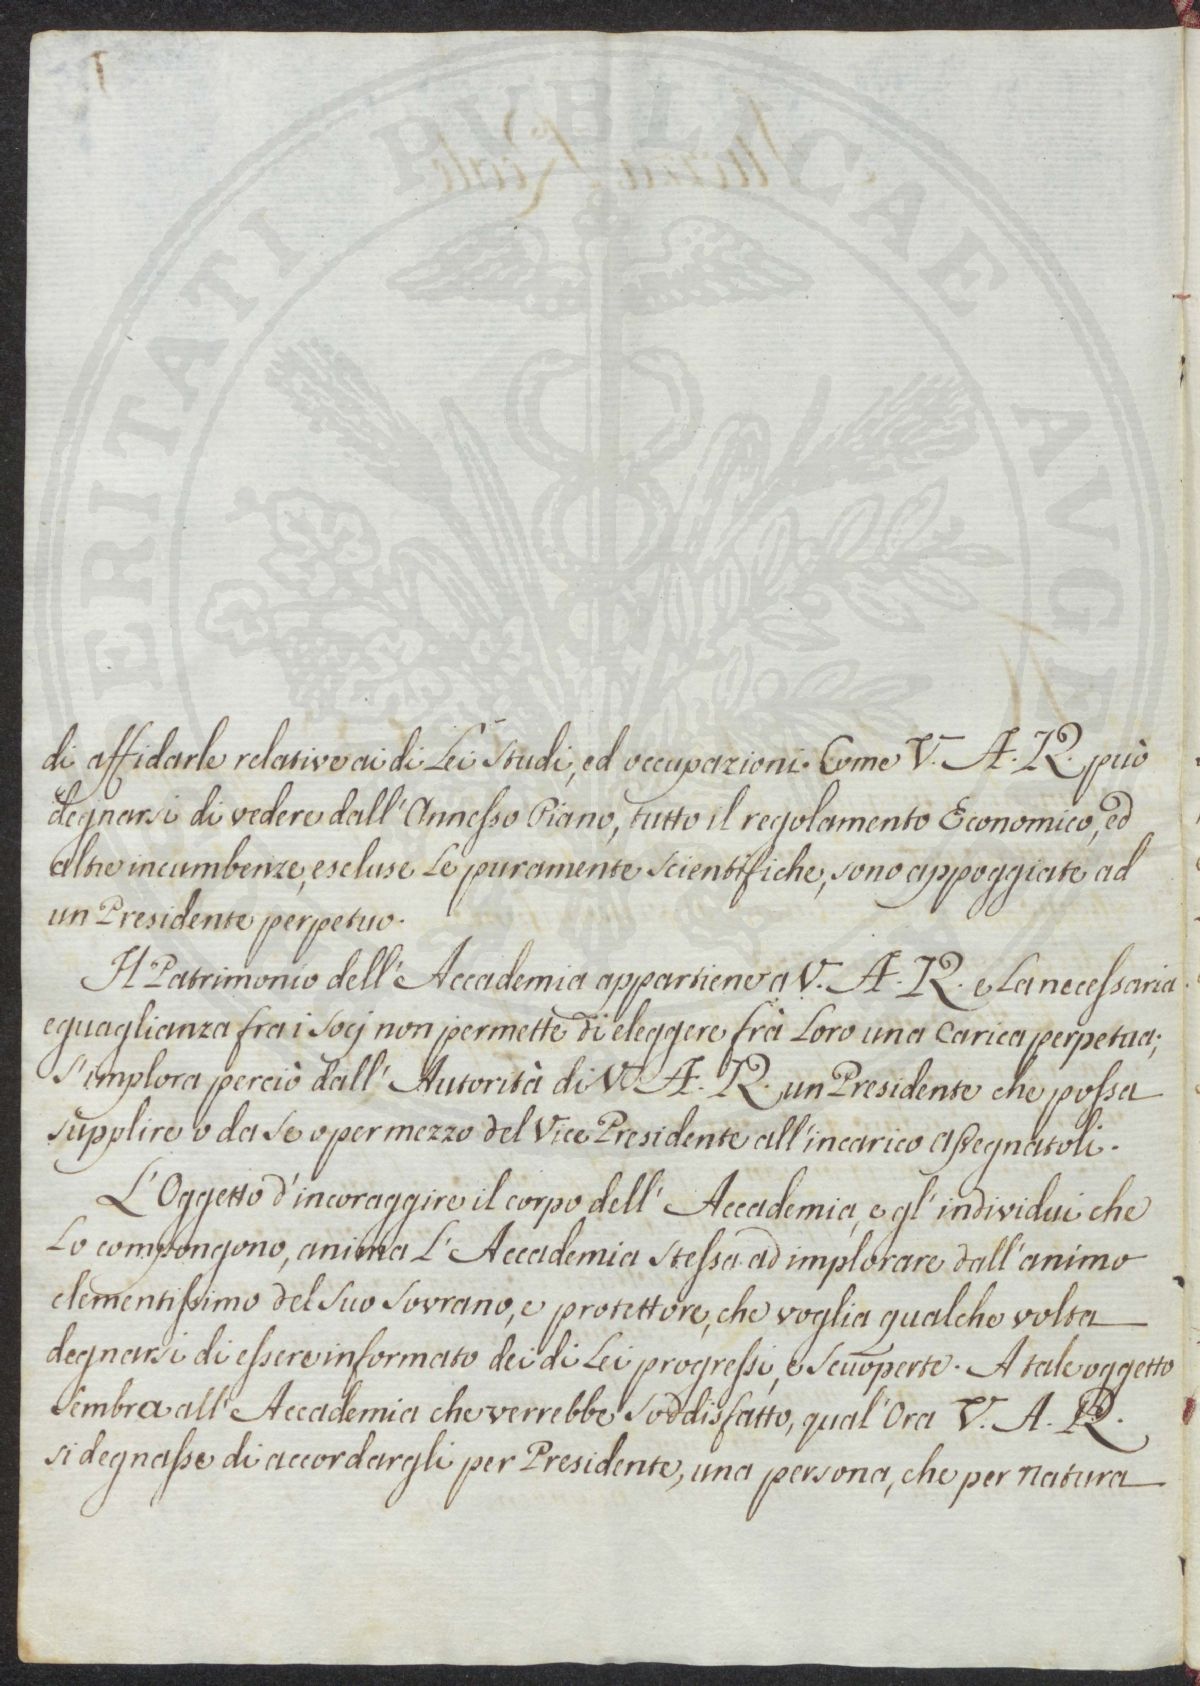 VERITATI PVBLICAE AVGE
di affidarle relative ai di Lei Studi, ed occupazioni. Come V. A. R. può
degnarsi di vedere dall' Annesso Piano, tutto il regolamento Economico, ed
altre incumbenze, escluse Le puramente scientifiche, sono appoggiate ad
un Presidente perpetuo.
Il Patrimonio dell' Accademia appartiene a V. A. R. e La necessaria
eguaglianza fra i Socj non permette di eleggere frà Loro una Carica perpetua;
S'implora perciò dall' Autorità di V. A. R. un Presidente che possa
supplire o da Se o per mezzo del Vice Presidente all'incarico assegnatoli.
L'Oggetto d'incoraggire il corpo dell' Accademia, e gl' individui che
Lo compongono, anima L' Accademia stessa ad implorare dall'animo
clementissimo del Suo Sovrano, e protettore, che voglia qualche volta
degnarsi di essere informato dei di Lei progressi, e Scuoperte. A tale oggetto
Sembra all' Accademia che verrebbe Soddisfatto, qual'Ora V. A. R.
si degnasse di accordargli per Presidente, una persona, che per natura